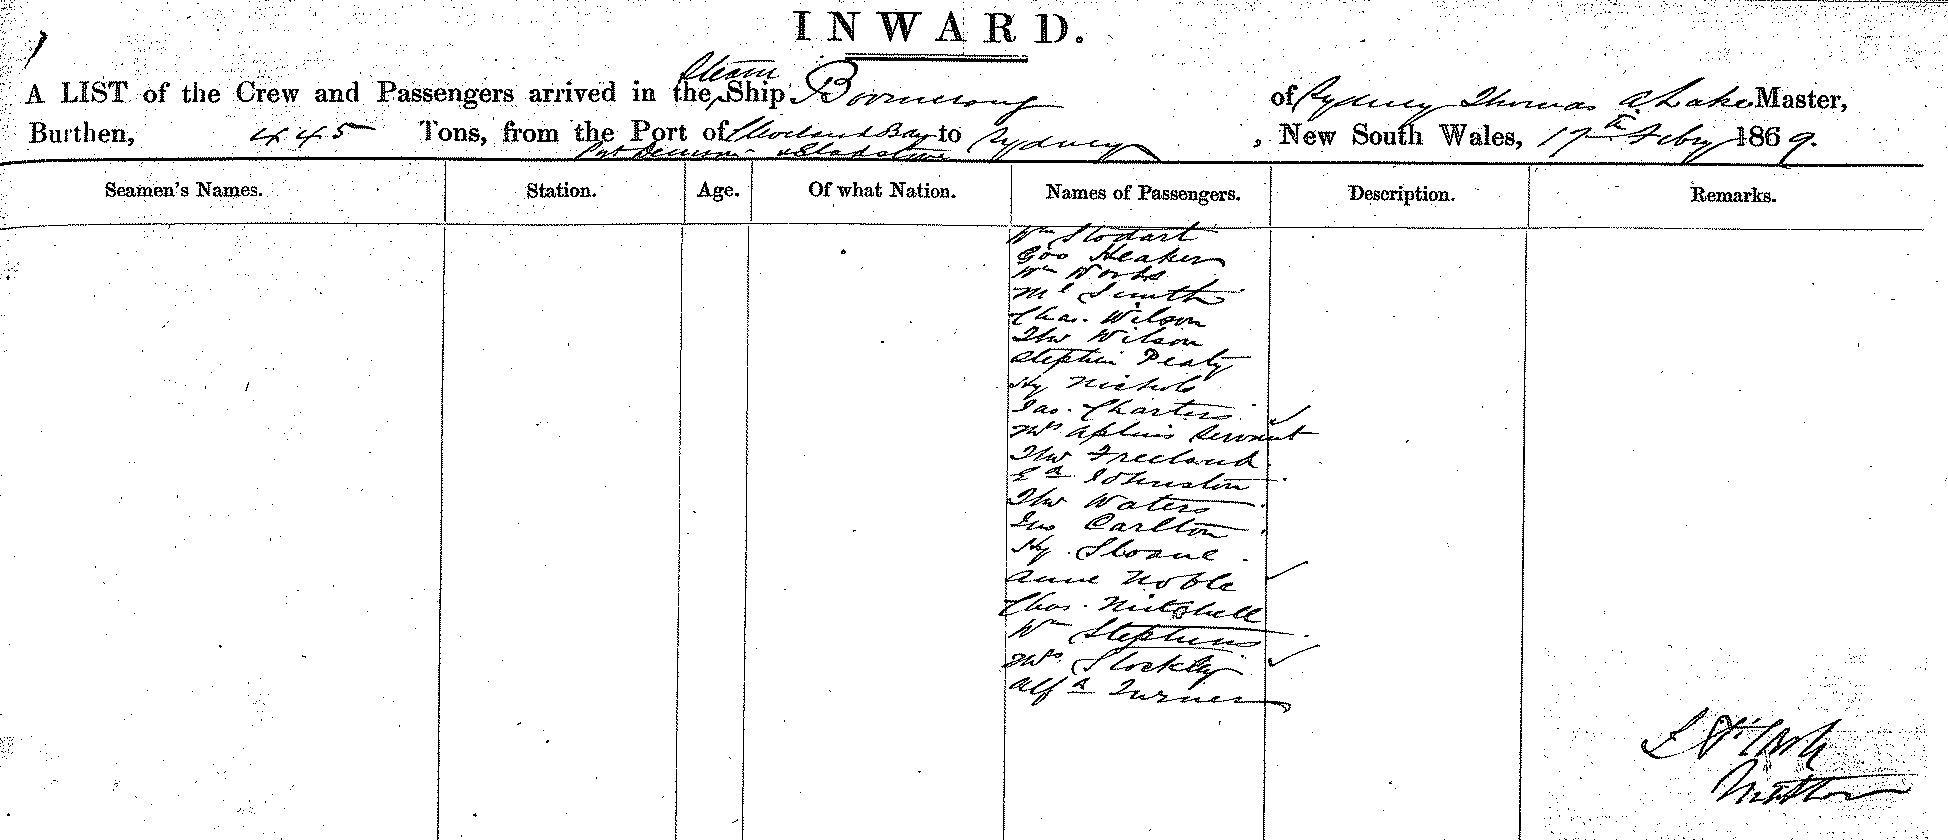 INWARD.
Steam
A LIST of the Crew and Passengers arrived in the Ship Boomerang of Sydney Thomas A Lake Master,
Burthen, 445 Tons, from the Port of Cleveland Bay to Sydney, New South Wales, 17th Feby 1869.
Port Denison & Gladstone
Seamen's Names. Station. Age. Of what Nation. Names of Passengers. Description. Remarks.
Wm Stodart
Geo Heaker
Wm Works
Ml Smith
Chas. Wilson
Tho Wilson
Stephen Peaty
Hy Nichols
Jas. Charters
Mrs Aplins Servant
Tho Freeland
Ed Johnston
Tho Waters
Jno Carlton
Hy Sloane
Anne Noble
Chas. Mitchell
Wm Stephens
Mrs Stockley
Alfd Turner